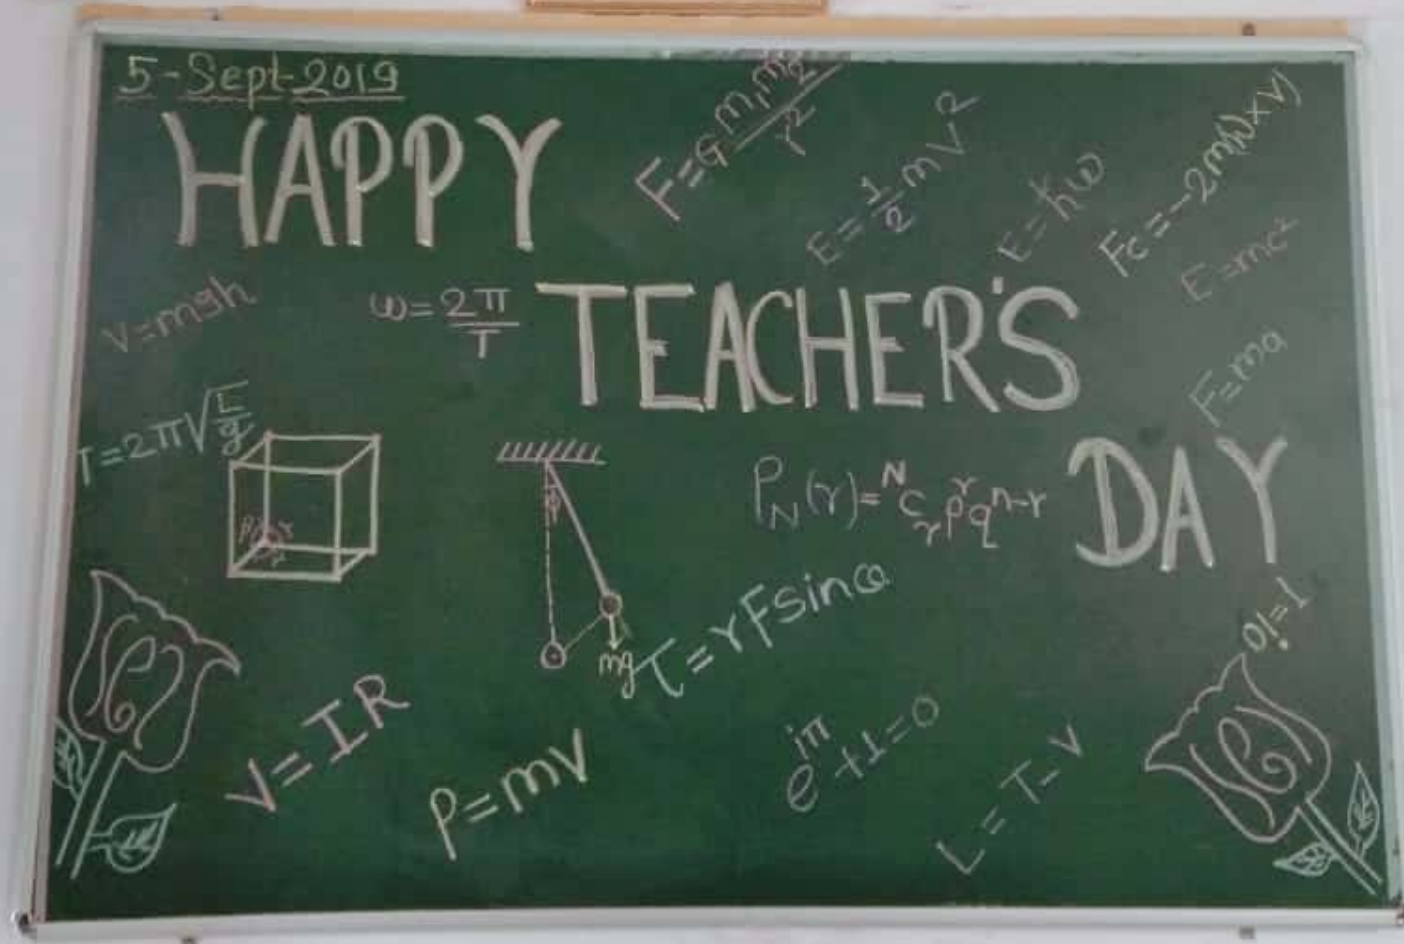 5-Sept-2019
HAPPY
F=G m₁m₂/r²
E=1/2 mv²
E=ħω
Fc=-2m(ω×v)
E=mc²
V=mgh
ω=2π/T
TEACHER'S
F=ma
T=2π√L/g
P_N(r)=ᴺC_r pʳqⁿ⁻ʳ
DAY
mg
τ=rFsinθ
0!=1
V=IR
P=mv
e^iπ+1=0
L=T-V